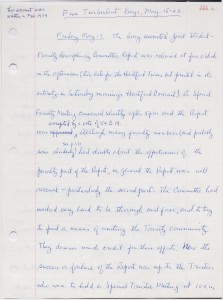 This account was
written in Feb 1979
Five Turbulent Days, May 15-20
Friday May 17 The long awaited Joint Student-
Faculty Disciplinary Committee Report was released at five o'clock
in the afternoon (too late for the Hartford Times but printed in its
entirety in Saturday morning's Hartford Courant). The
Faculty Meeting convened shortly after and the Report
was although many faculty members (and probably
similarly) had doubts about the effectiveness of the
penalty part of the Report, in general the Report was well
received – particularly the second part. The Committee had
worked very hard to be thorough and fair, and to try
to find a means of uniting the Trinity community.
They deserve much credit for their efforts. Now the
success or failure of the Report was up to the Trustees
who were to hold a Special Trustee Meeting at 10 a.m.